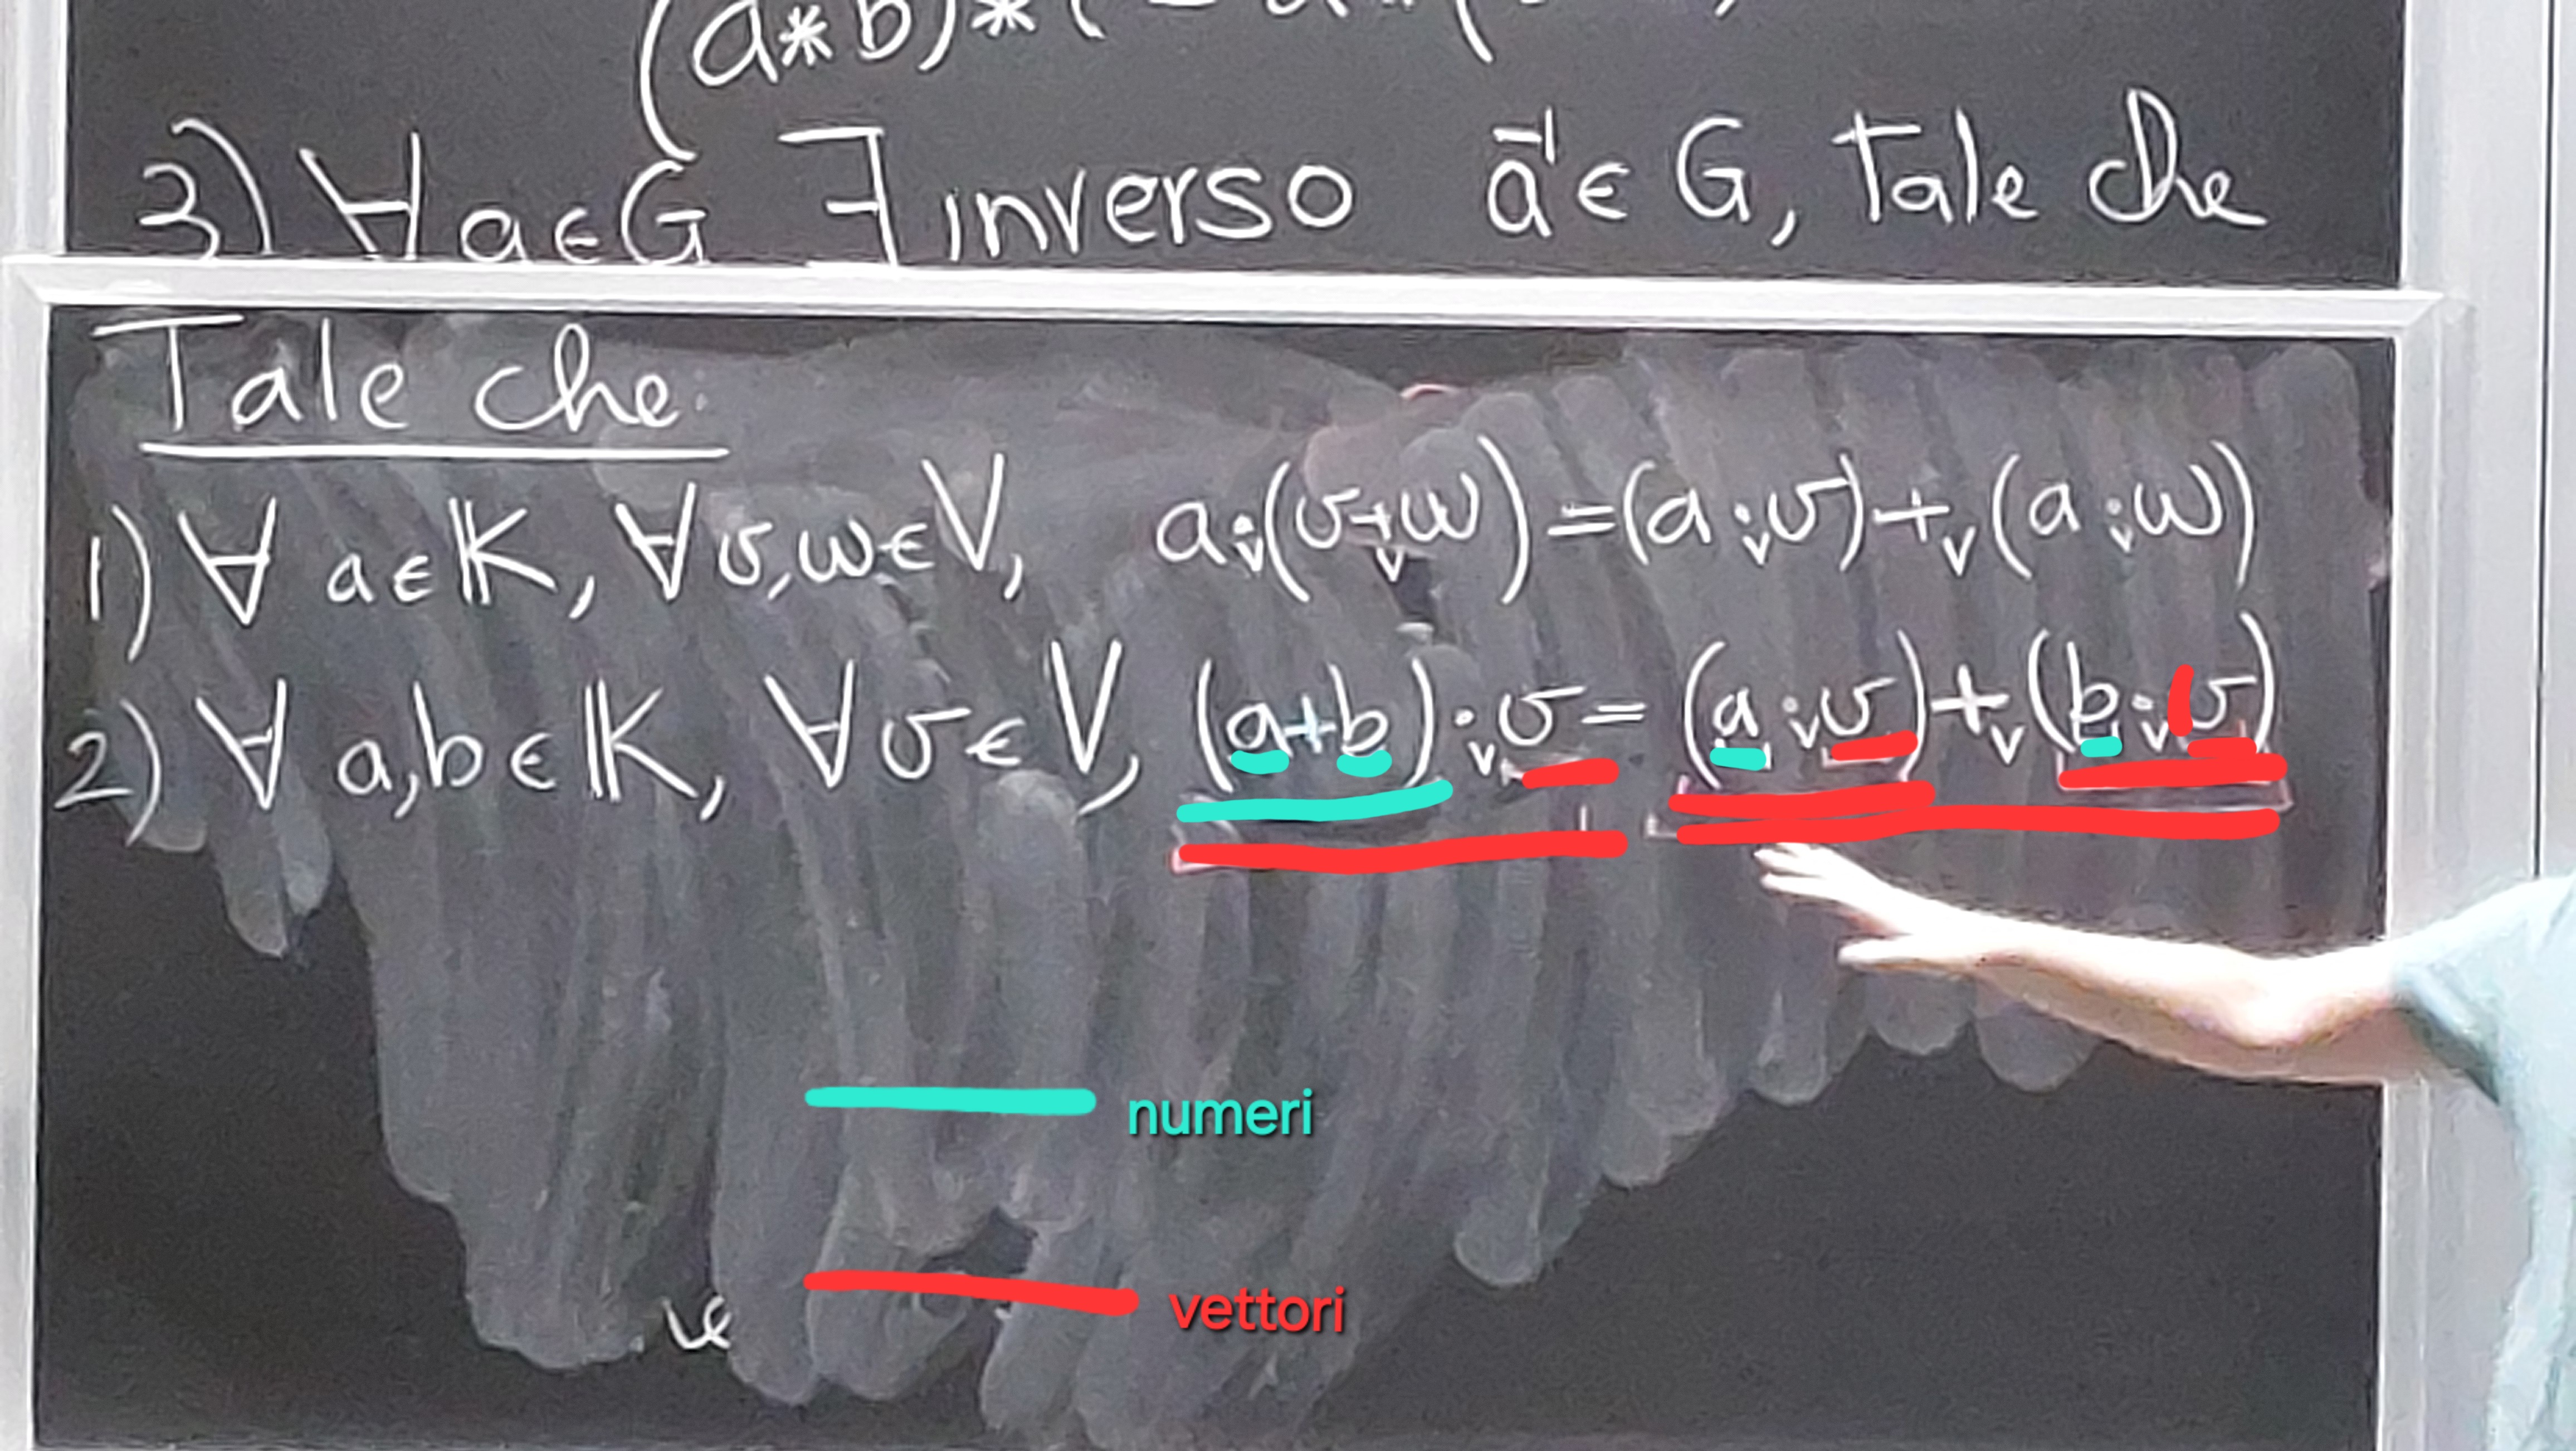 (a*b)*(
3) ∀ a∈G ∃ inverso a⁻¹∈ G, tale che
Tale che:
1) ∀ a∈𝕂, ∀v,w∈V, a·ᵥ(v+ᵥw)=(a·ᵥv)+ᵥ(a·ᵥw)
2) ∀ a,b∈𝕂, ∀v∈V, (a+b)·ᵥv=(a·ᵥv)+ᵥ(b·ᵥv)
numeri
vettori